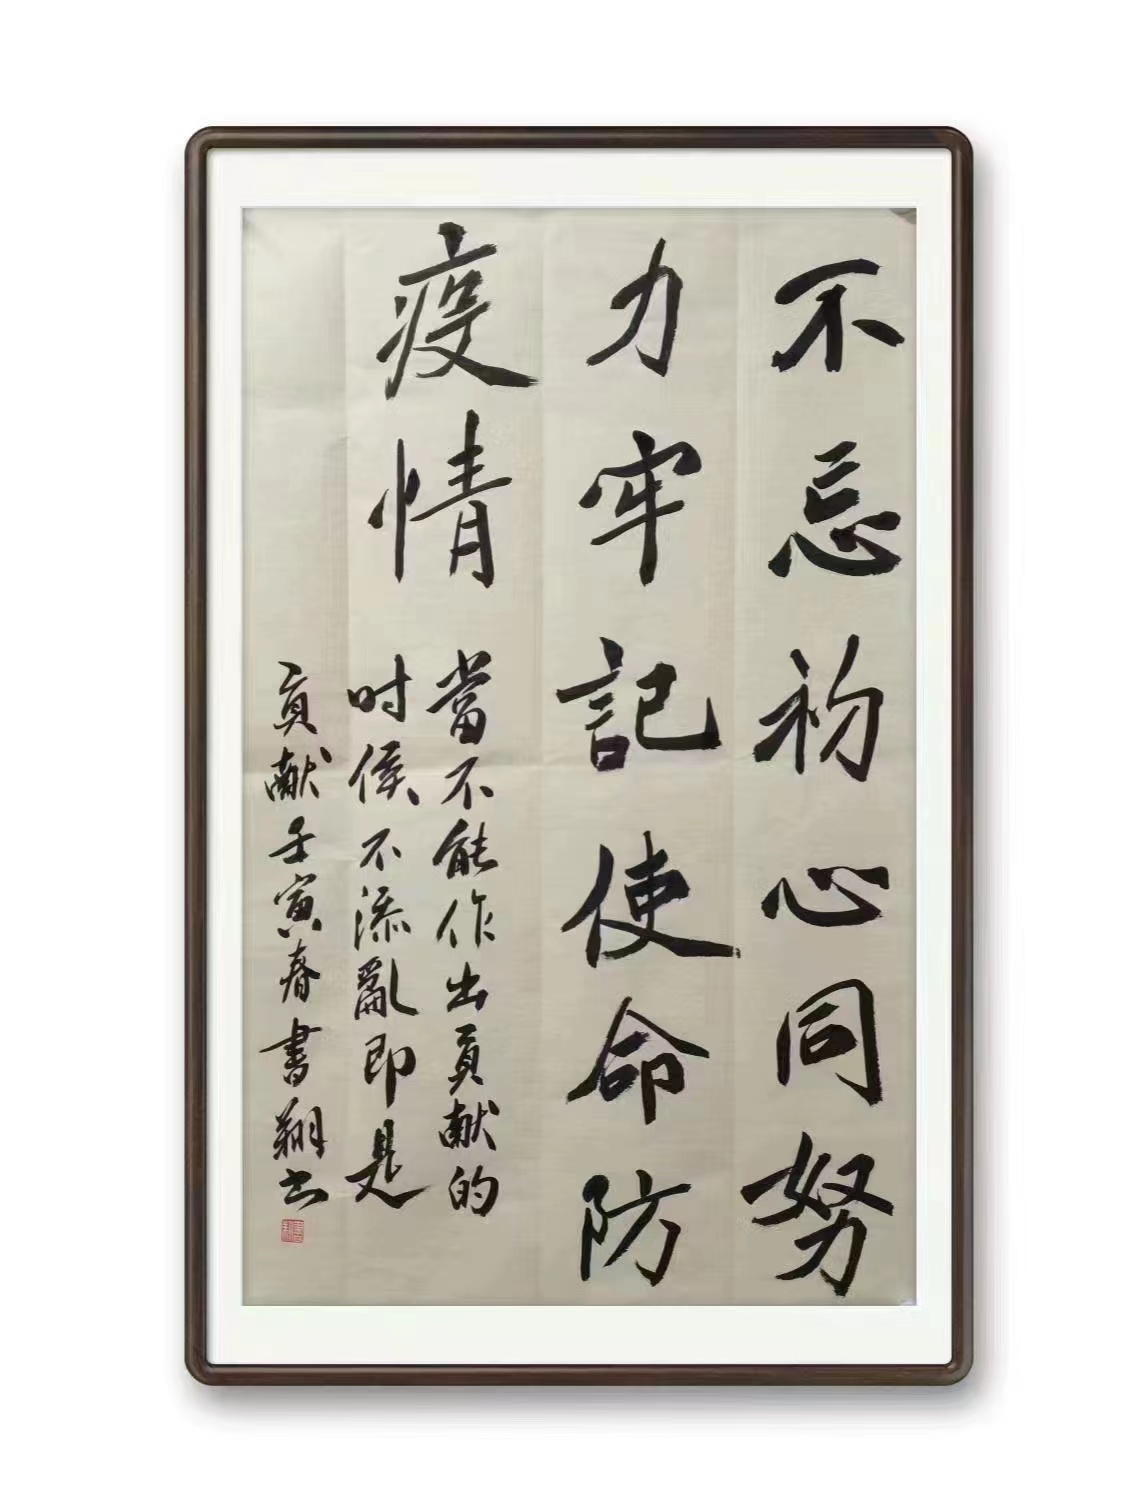 不忘初心同努
力牢記使命防
疫情
當不能作出貢献的
时候不添亂即是
貢献壬寅春書翔书